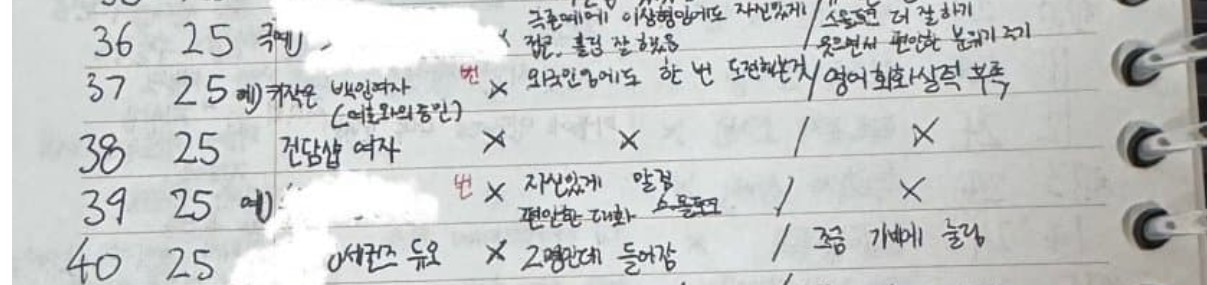 극존예에 이상형임에도 자신있게 / 스몰토크 더 잘하기
36 25 극예) 접근, 플러팅 잘 했음 웃으면서 편안한 분위기 주기
37 25 예) 키작은 백인여자 번 × 외국인임에도 한 번 도전했는것 / 영어회화실력 부족
(여호와의증인)
38 25 건담샵 여자 × × / ×
39 25 예) 번 × 자신있게 말검 / ×
편안한 대화 스몰토크
40 25 듀오 × 2명인데 들어감 / 조금 기빨에 눌림